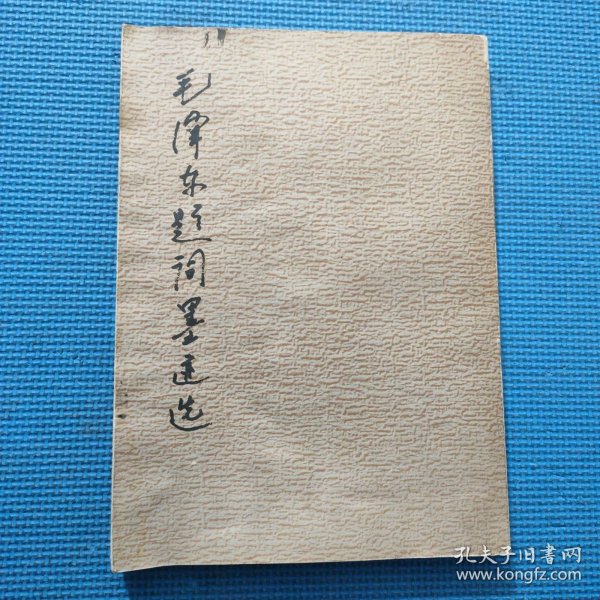 毛泽东题词墨迹选
孔夫子旧書网
www.kongfz.com